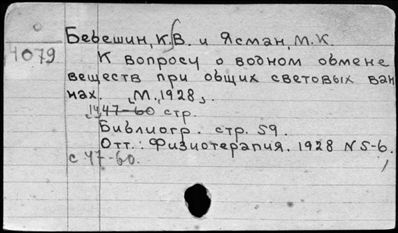 Бебешин, К.В. и Ясман, М.К.
4079
К вопросу о водном обмене
веществ при общих световых ван
нах. М., 1928.
47-60 стр.
Библиогр. стр. 59.
Отт.: Физиотерапия. 1928 N 5-6.
с 47-60.